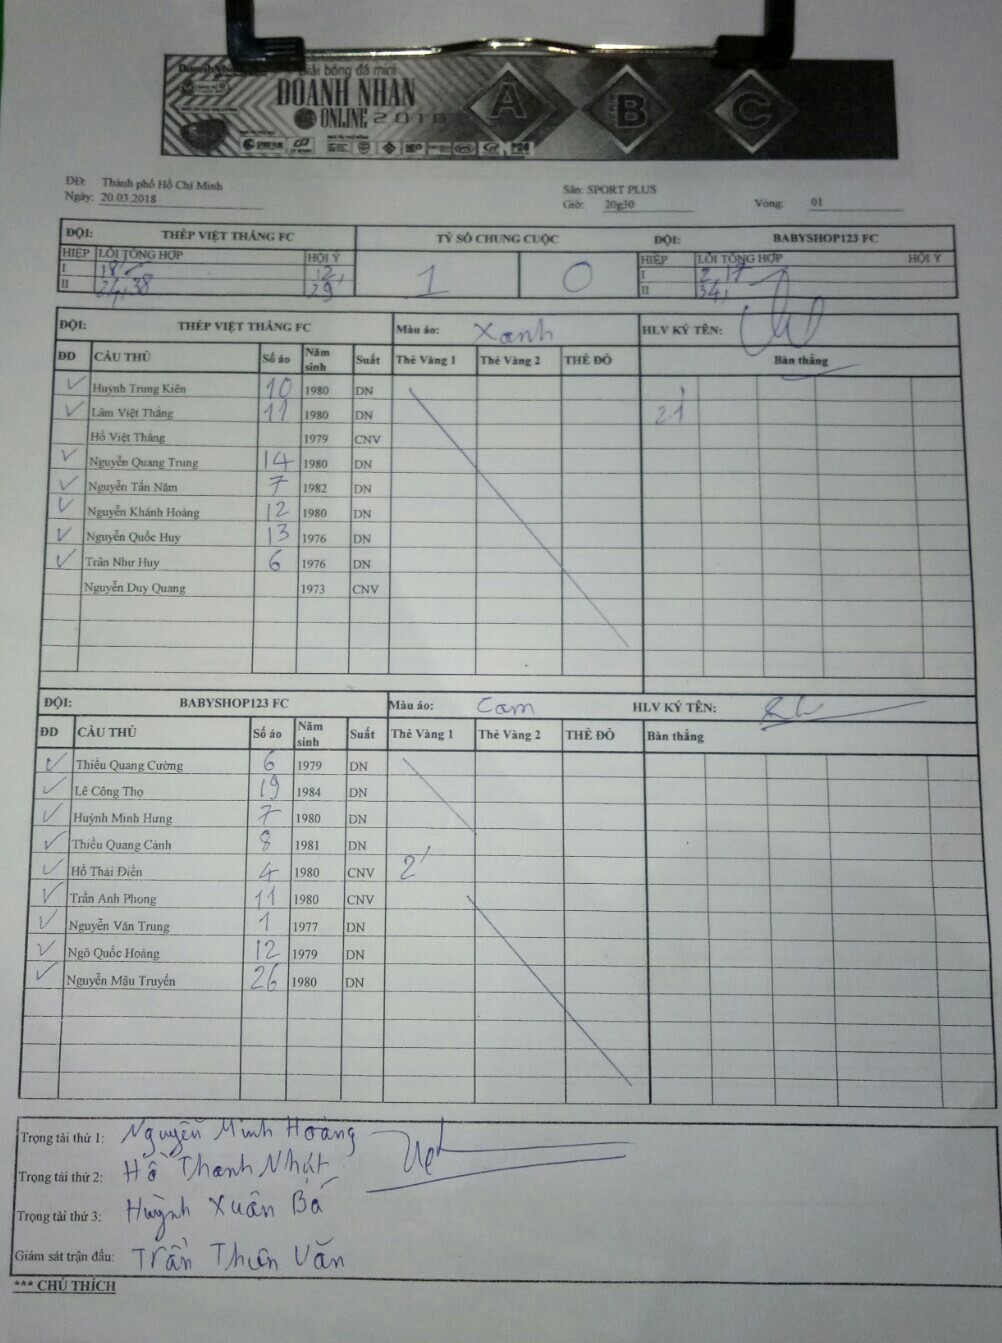 Giải bóng đá mini
DOANH NHAN
ONLINE 2018
A B C
ĐĐ: Thành phố Hồ Chí Minh Sân: SPORT PLUS
Ngày: 20.03.2018 Giờ: 20g30 Vòng: 01
ĐỘI: THÉP VIỆT THẮNG FC TỶ SỐ CHUNG CUỘC ĐỘI: BABYSHOP123 FC
HIỆP LỖI TỔNG HỢP HỘI Ý 1 0 HIỆP LỖI TỔNG HỢP HỘI Ý
I 18' 12' I 2, 17
II 24, 38 29' II 34,
ĐỘI: THÉP VIỆT THẮNG FC Màu áo: Xanh HLV KÝ TÊN:
ĐD CẦU THỦ Số áo Năm sinh Suất Thẻ Vàng 1 Thẻ Vàng 2 THẺ ĐỎ Bàn thắng
✓ Huỳnh Trung Kiên 10 1980 DN
✓ Lâm Việt Thắng 11 1980 DN 21'
Hồ Việt Thắng 1979 CNV
✓ Nguyễn Quang Trung 14 1980 DN
✓ Nguyễn Tấn Năm 7 1982 DN
✓ Nguyễn Khánh Hoàng 12 1980 DN
✓ Nguyễn Quốc Huy 13 1976 DN
✓ Trần Như Huy 6 1976 DN
Nguyễn Duy Quang 1973 CNV
ĐỘI: BABYSHOP123 FC Màu áo: Cam HLV KÝ TÊN:
ĐD CẦU THỦ Số áo Năm sinh Suất Thẻ Vàng 1 Thẻ Vàng 2 THẺ ĐỎ Bàn thắng
✓ Thiều Quang Cường 6 1979 DN
✓ Lê Công Thọ 19 1984 DN
✓ Huỳnh Minh Hưng 7 1980 DN
✓ Thiều Quang Cảnh 8 1981 DN
✓ Hồ Thái Điền 4 1980 CNV 2'
✓ Trần Anh Phong 11 1980 CNV
✓ Nguyễn Văn Trung 1 1977 DN
✓ Ngô Quốc Hoàng 12 1979 DN
✓ Nguyễn Mậu Truyền 26 1980 DN
Trọng tài thứ 1: Nguyễn Minh Hoàng
Trọng tài thứ 2: Hồ Thanh Nhật
Trọng tài thứ 3: Huỳnh Xuân Bá
Giám sát trận đấu: Trần Thiên Văn
*** CHÚ THÍCH